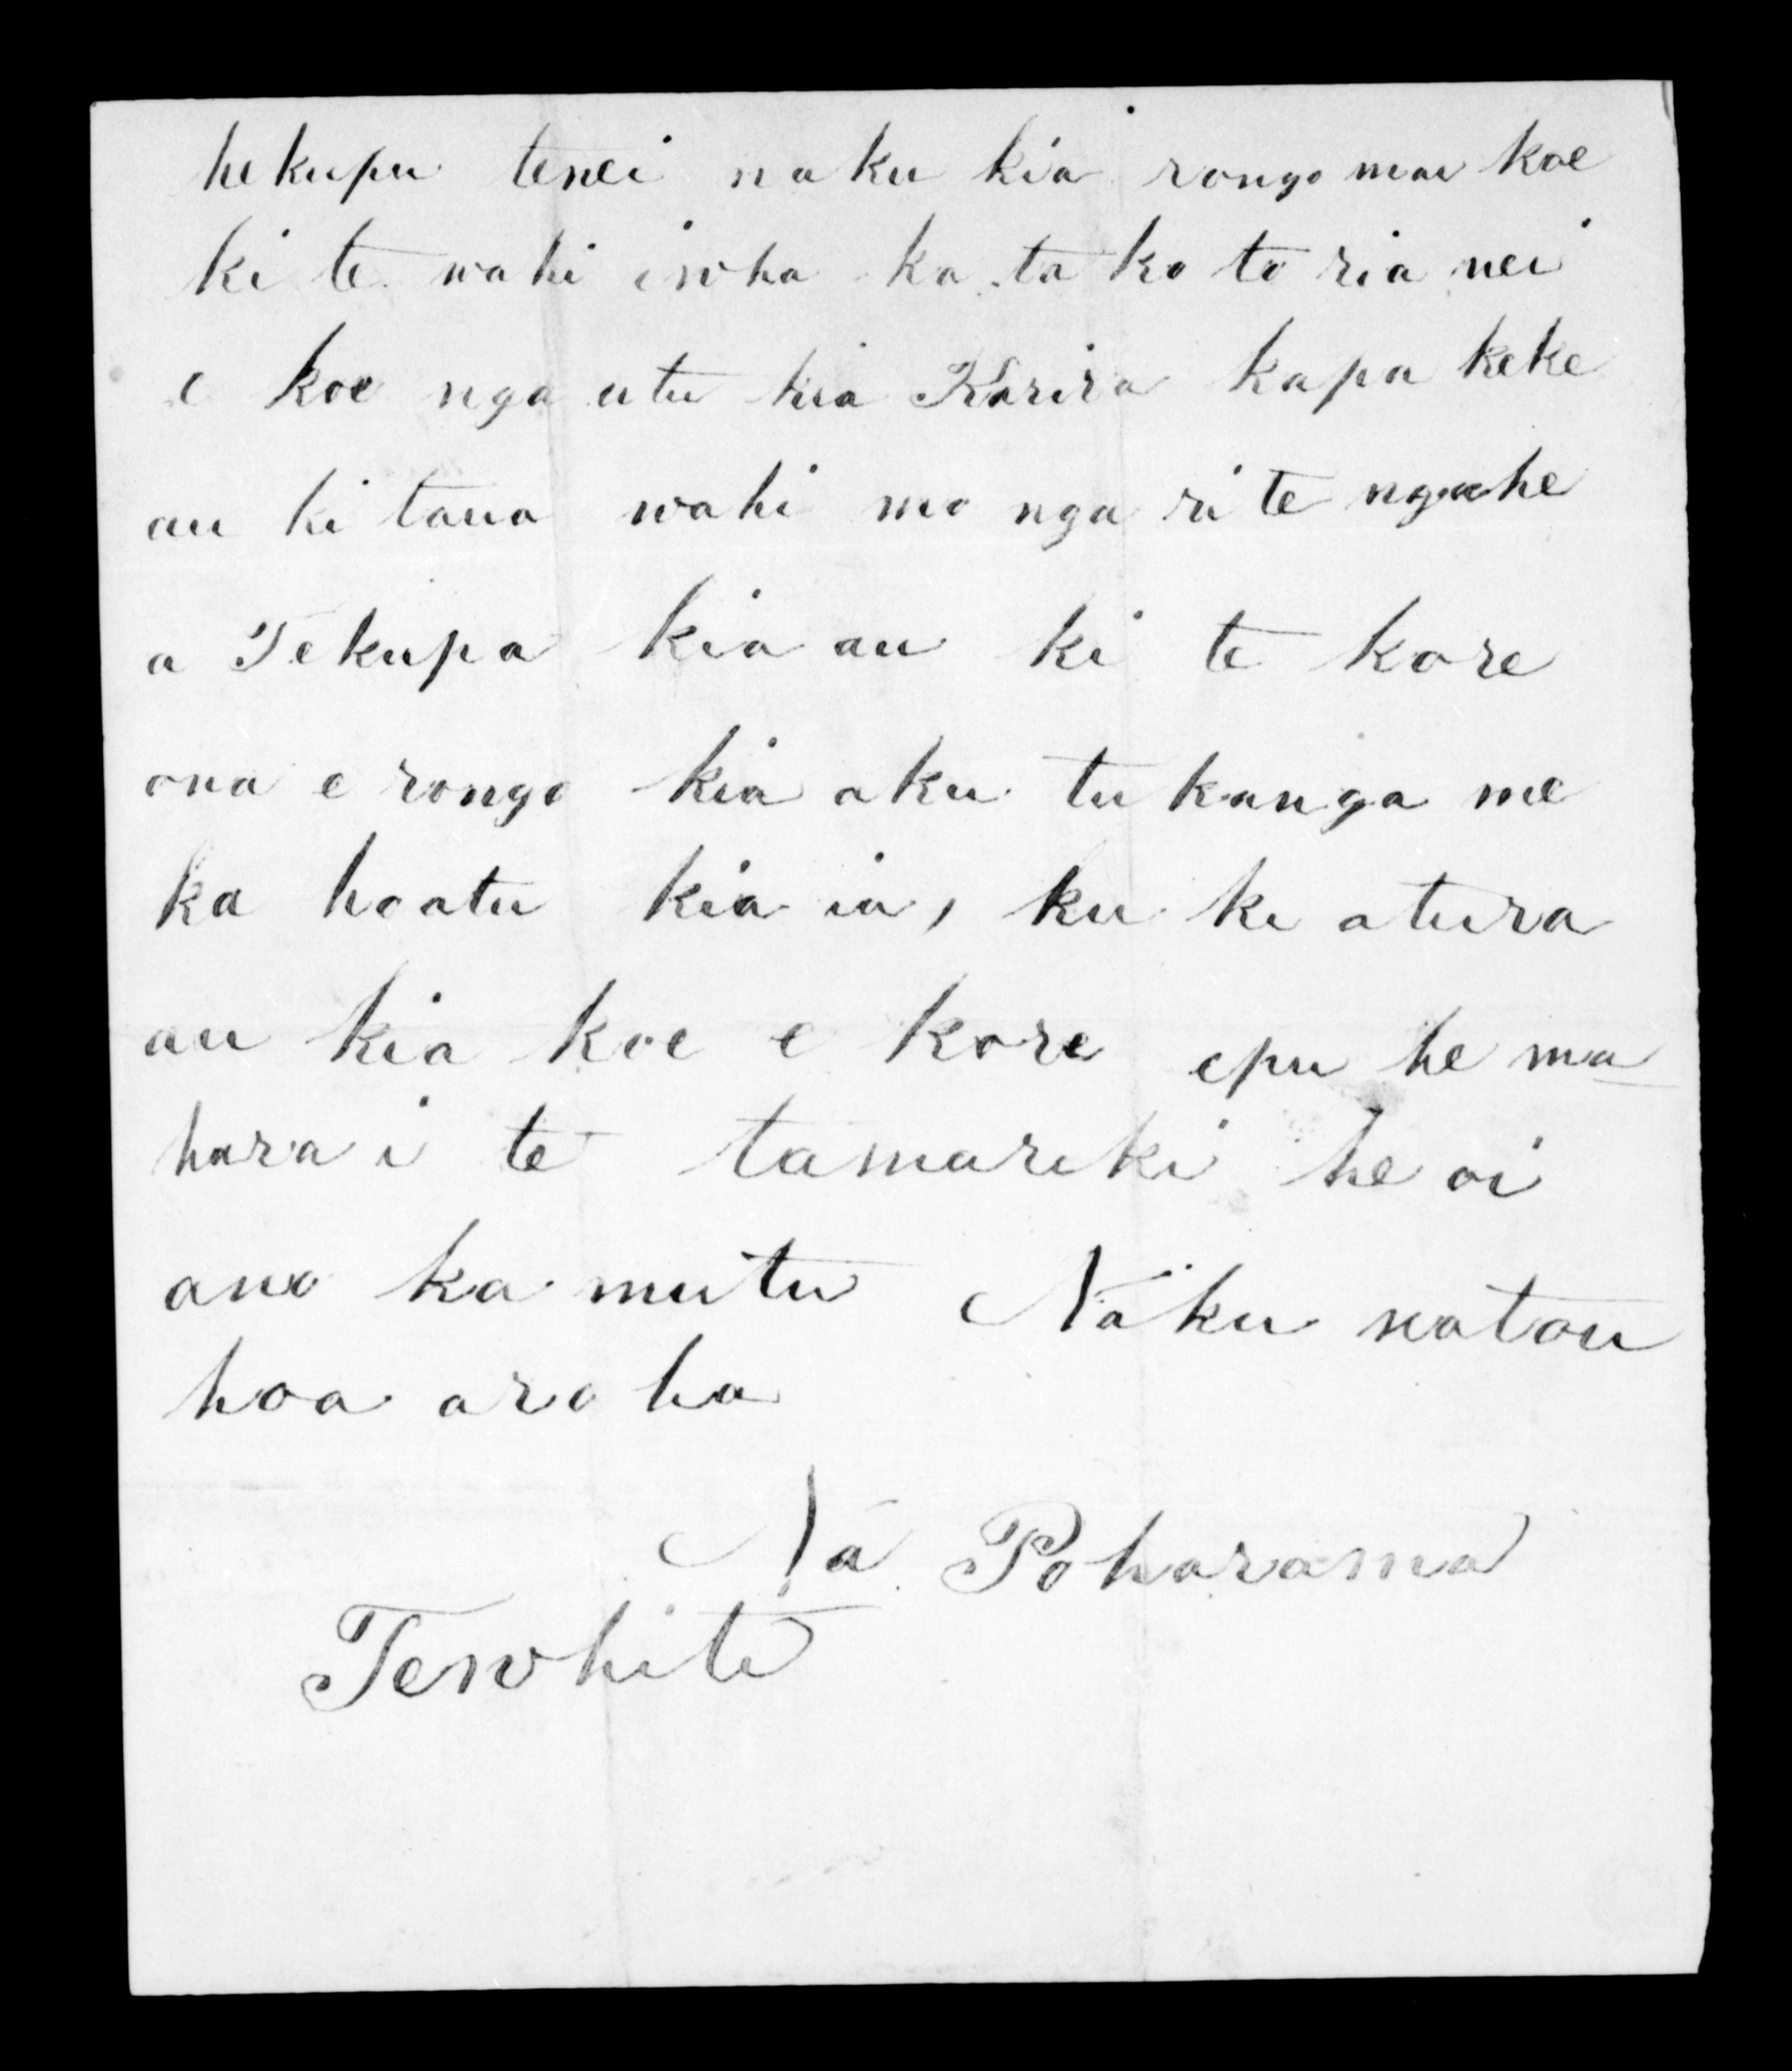 he kupu tenei naku kia rongo mai koe
ki te wahi i wha ka ta ko to ria nei
e koe nga utu kia Karira ka pa keke
au ki taua wahi mo nga ri te nga he
a Te kupa kia au ki te kore
ona e rongo kia aku tu kanga me
ka hoatu kia ia, ku ki atura
au kia koe e kore epu he ma
hara i te tamariki he oi
ano ka mutu Naku na tou
hoa aroha
Na Poharama
Te whiti